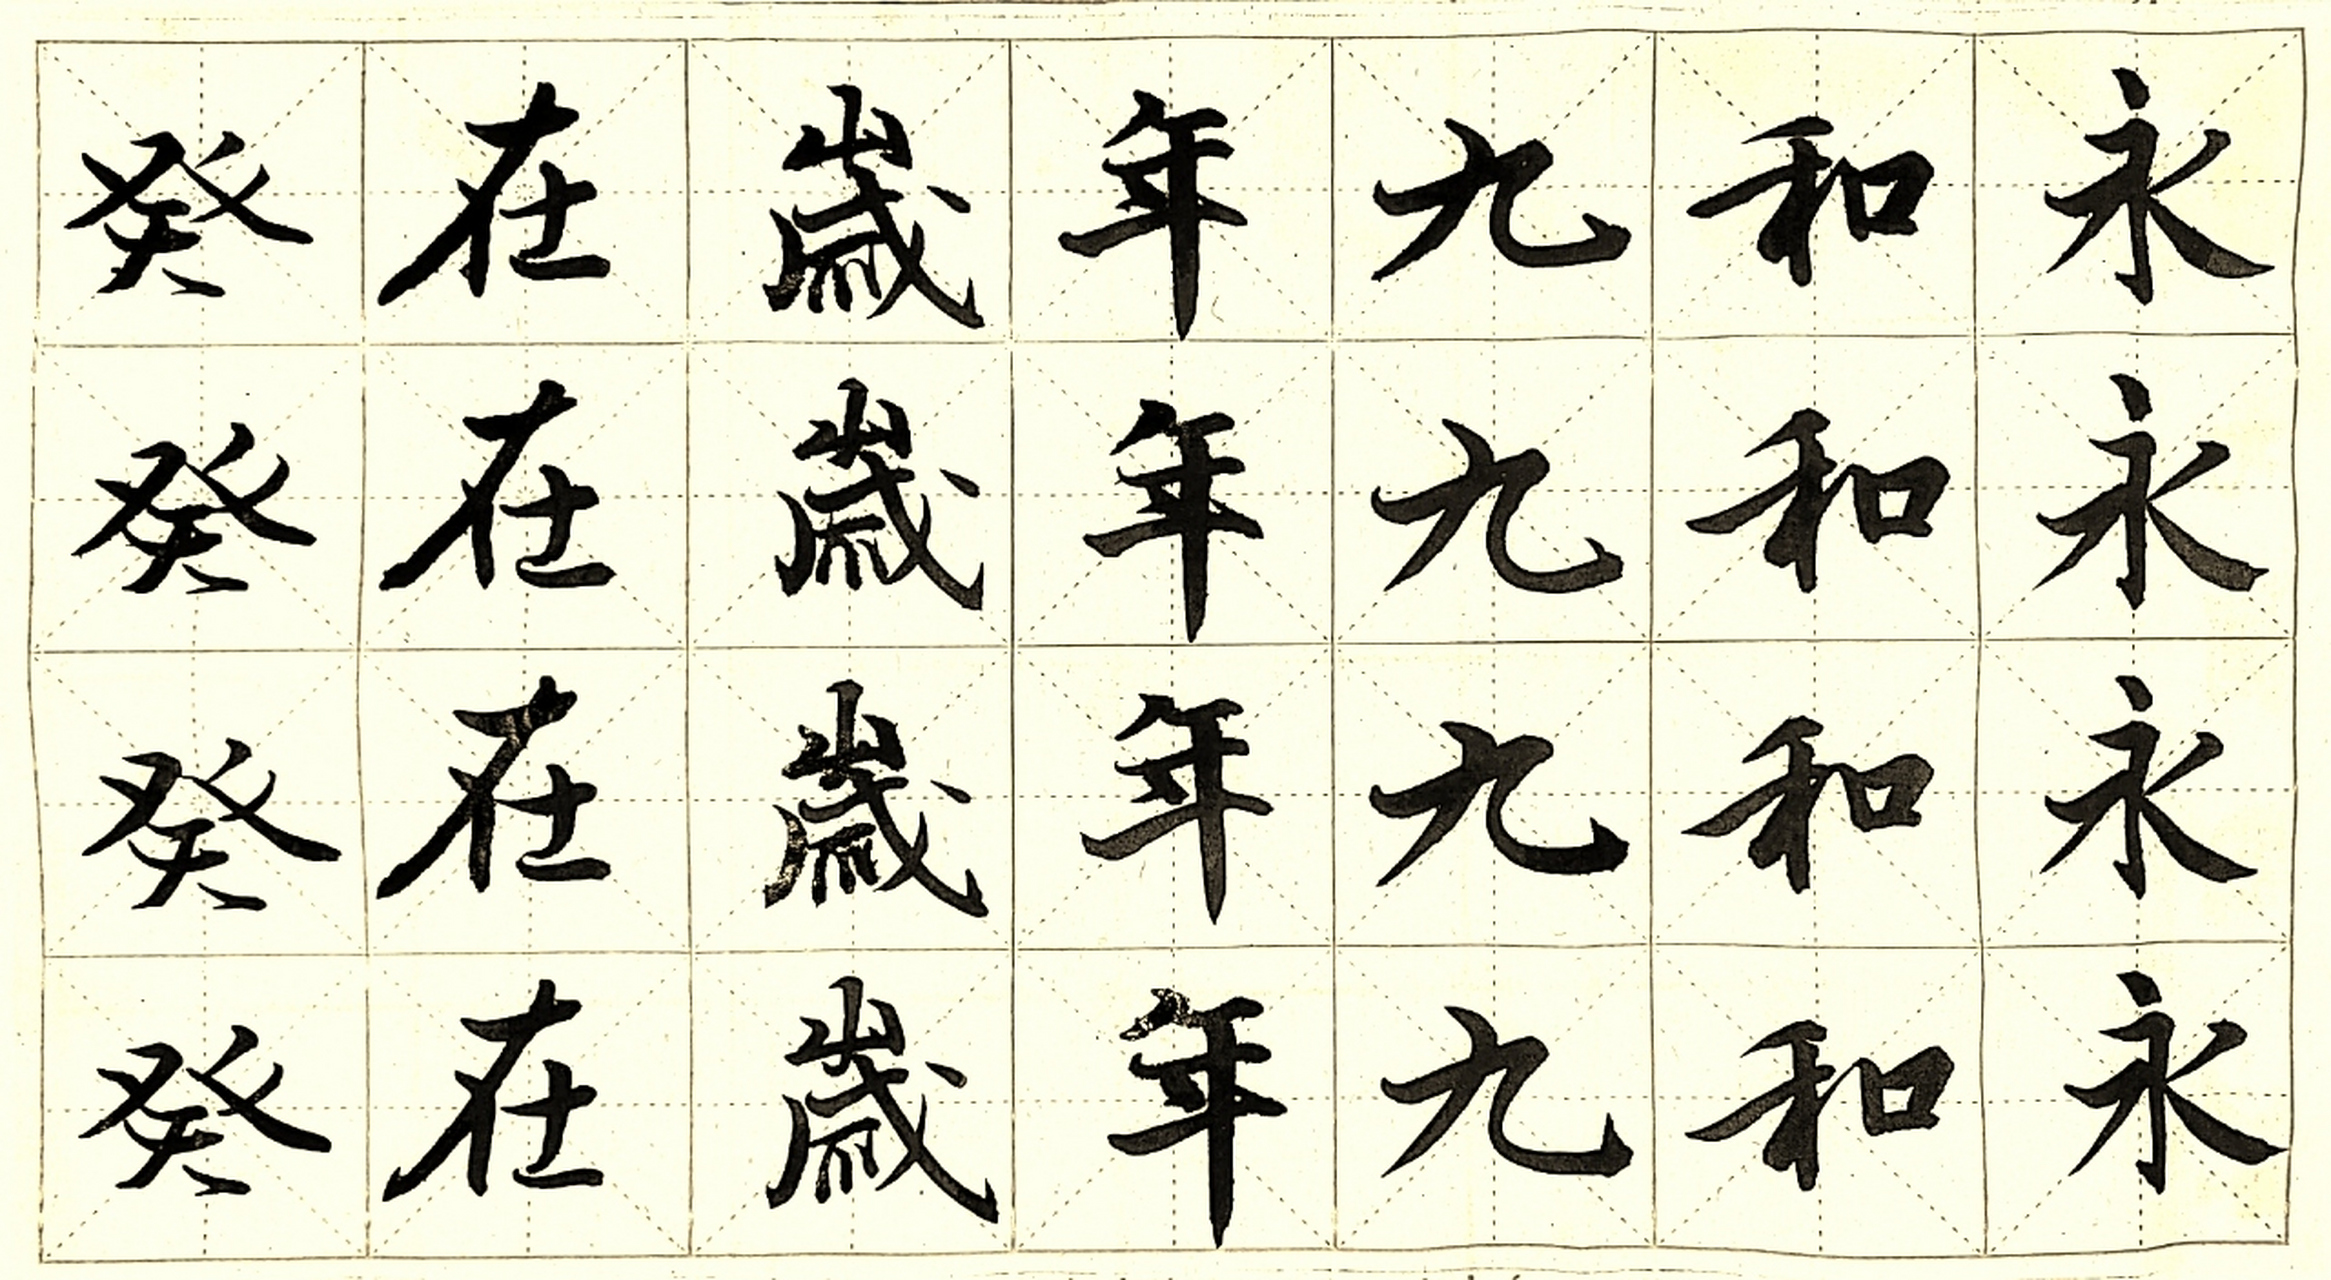 永永永永
和和和和
九九九九
年年年年
歲歲歲歲
在在在在
癸癸癸癸